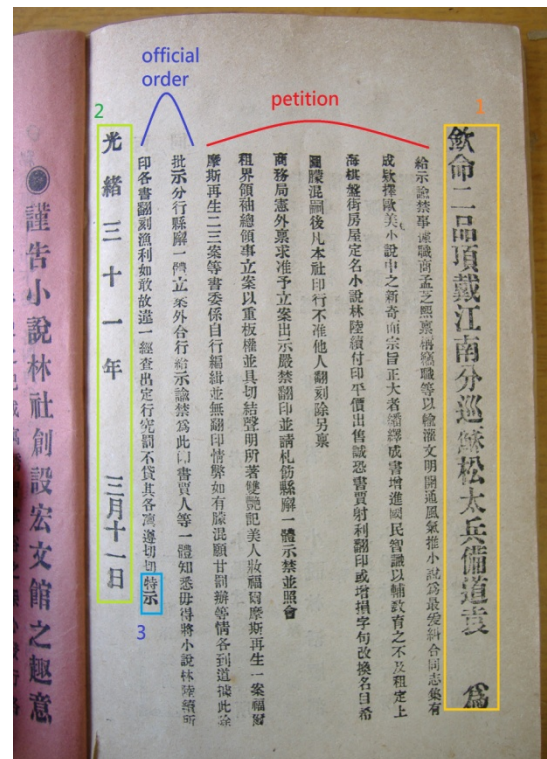 official
order
petition
1
2
3
欽命二品頂戴江南分巡蘇松太兵備道袁 爲
給示諭禁事據職商孟芝熙稟稱竊職等以輸灌文明開通風氣推小說爲最爰糾合同志集有
成欵擇歐美小說中之新奇而宗旨正大者繙繹成書增進國民智識以輔敎育之不及租定上
海棋盤街房屋定名小說林陸續付印平價出售誠恐書賈射利翻印或增損字句改換名目希
圖朦混嗣後凡本社印行不准他人翻刻除另稟
商務局憲外稟求准予立案出示嚴禁翻印並請札飭縣廨一體示禁並照會
租界領袖總領事立案以重板權並具切結聲明所著雙艷記美人妝福爾摩斯再生一案福爾
摩斯再生二三案等書委係自行編緝並無翻印情弊如有朦混願甘罰辦等情各到道據此除
批示分行縣廨一體立案外合行給示諭禁爲此仰書賈人等一體知悉毋得將小說林陸續所
印各書翻刻漁利如敢故違一經查出定行究罰不貸其各凜遵切切特示
光緒三十一年 三月十一日
●謹告小說林社創設宏文館之趣意